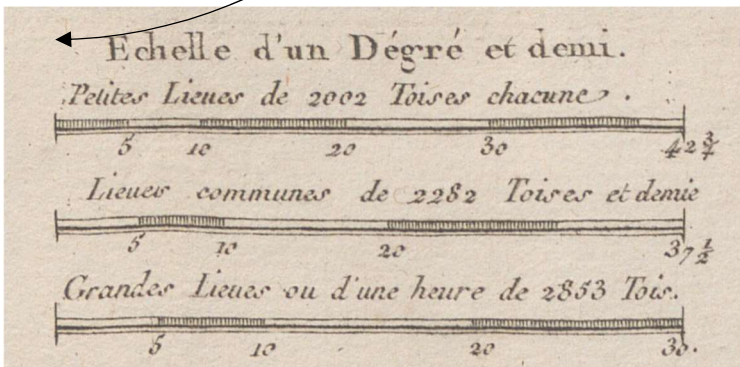 Echelle d'un Dégré et demi.
Petites Lieues de 2002 Toises chacune.
5 10 20 30 42 3/4
Lieues communes de 2282 Toises et demie
5 10 20 37 1/2
Grandes Lieues ou d'une heure de 2853 Tois.
5 10 20 30.